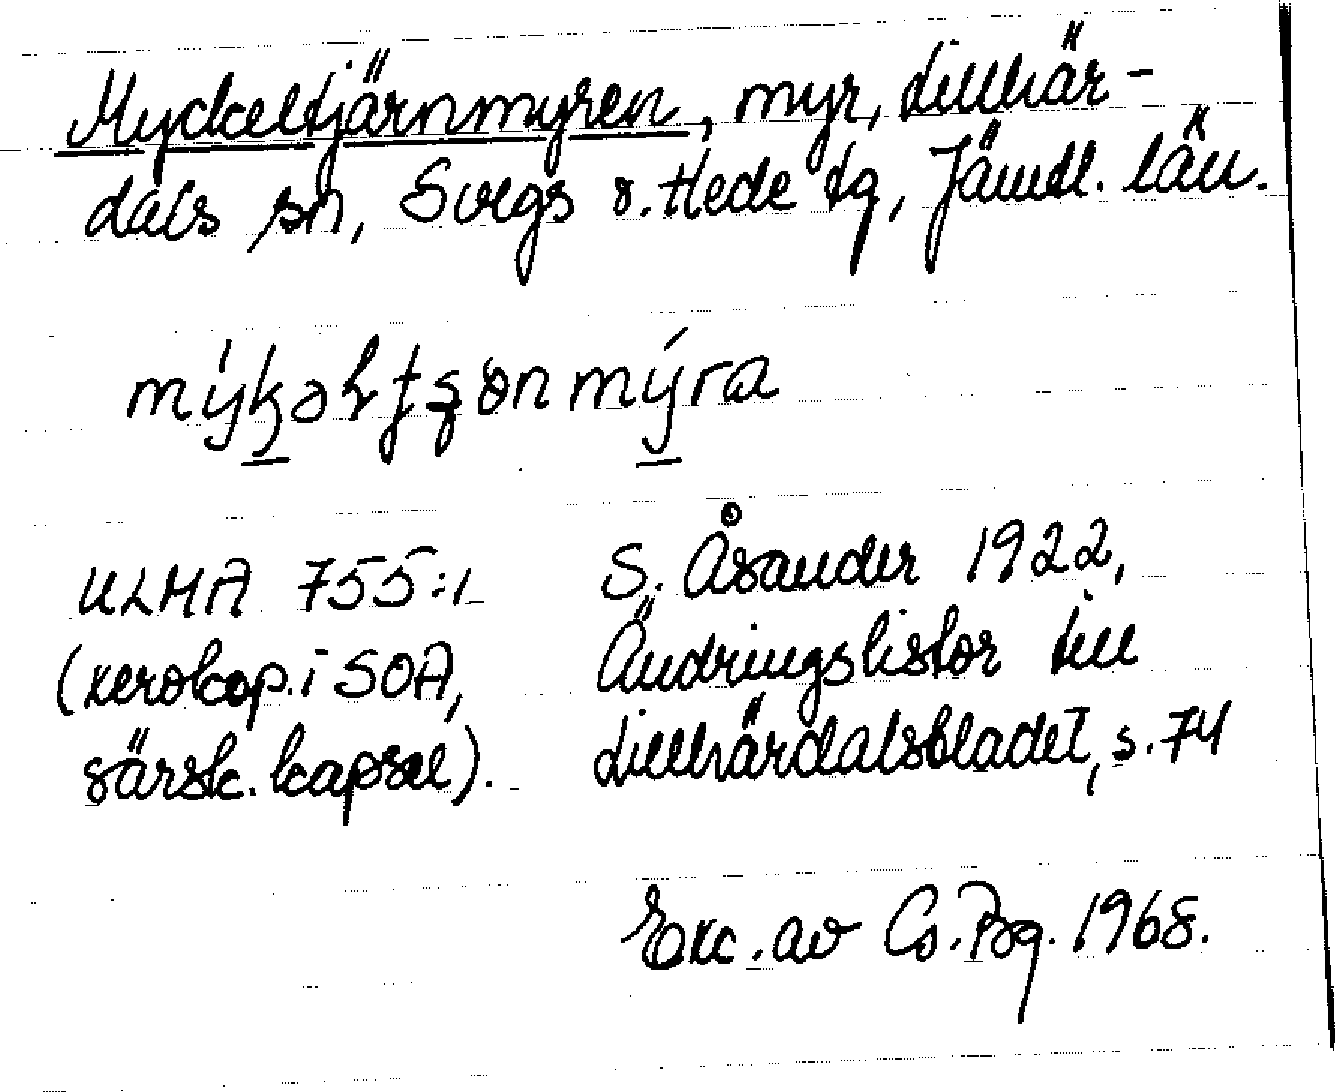 Myckeltjärnmyren, myr, Lillhär-
dals sn, Svegs o. Hede tg, Jämtl. län.
mýkəltʂənmýra
ULMA 755:1
(xerokop. i SOA,
särsk. kapsel).
S. Åsander 1922,
Ändringslistor till
Lillhärdalsbladet, s. 74
Exc. av Cs. Bg. 1968.